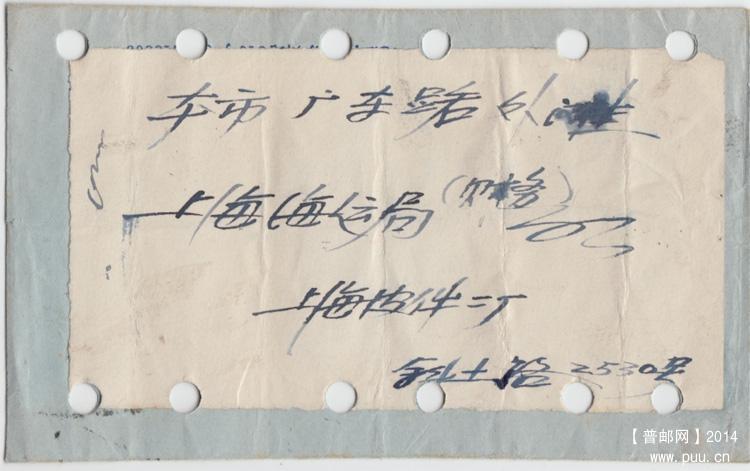 本市 广东路
上海海运局(财务)
上海皮件二厂
斜土路2530号
【普邮网】2014
www.puu.cn